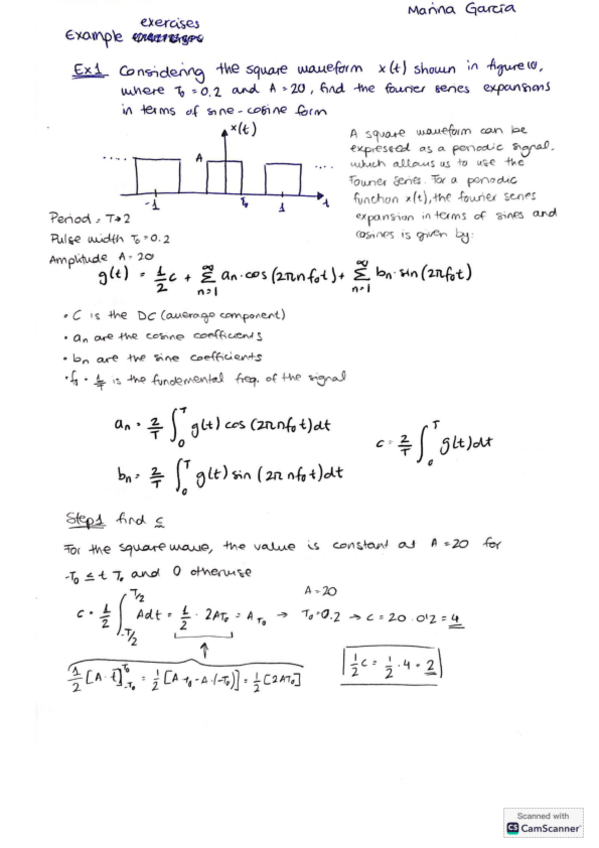 Marina García
exercises
Example
Ex1 Considering the square waveform x(t) shown in figure 10,
where T₀ = 0.2 and A = 20, find the fourier series expansions
in terms of sine-cosine form
x(t)
A
.....
....
-1
T₀
1
t
A square waveform can be
expressed as a periodic signal,
which allows us to use the
Fourier Series. For a periodic
function x(t), the fourier series
expansion in terms of sines and
cosines is given by:
Period, T→2
Pulse width T₀ = 0.2
Amplitude A = 20
g(t) = 1/2 c + ∑ₙ₌₁^∞ aₙ·cos(2πnf₀t) + ∑ₙ₌₁^∞ bₙ·sin(2πf₀t)
• C is the DC (average component)
• aₙ are the cosine coefficients
• bₙ are the sine coefficients
• f₀ = 1/T is the fundemental freq. of the signal
aₙ = 2/T ∫₀^T g(t) cos(2πnf₀t)dt
c = 2/T ∫₀^T g(t)dt
bₙ = 2/T ∫₀^T g(t) sin(2πnf₀t)dt
Step1 find c
For the square wave, the value is constant at A = 20 for
-T₀ ≤ t T₀ and 0 otherwise
A = 20
c = 1/2 ∫_{-T/2}^{T/2} A dt = 1/2 · 2AT₀ = A T₀ → T₀ = 0.2 → c = 20 · 0'2 = 4
1/2 [A·t]_{-T₀}^{T₀} = 1/2 [A·t₀ - A·(-T₀)] = 1/2 [2AT₀]
1/2 c = 1/2 · 4 = 2
Scanned with
CS CamScanner